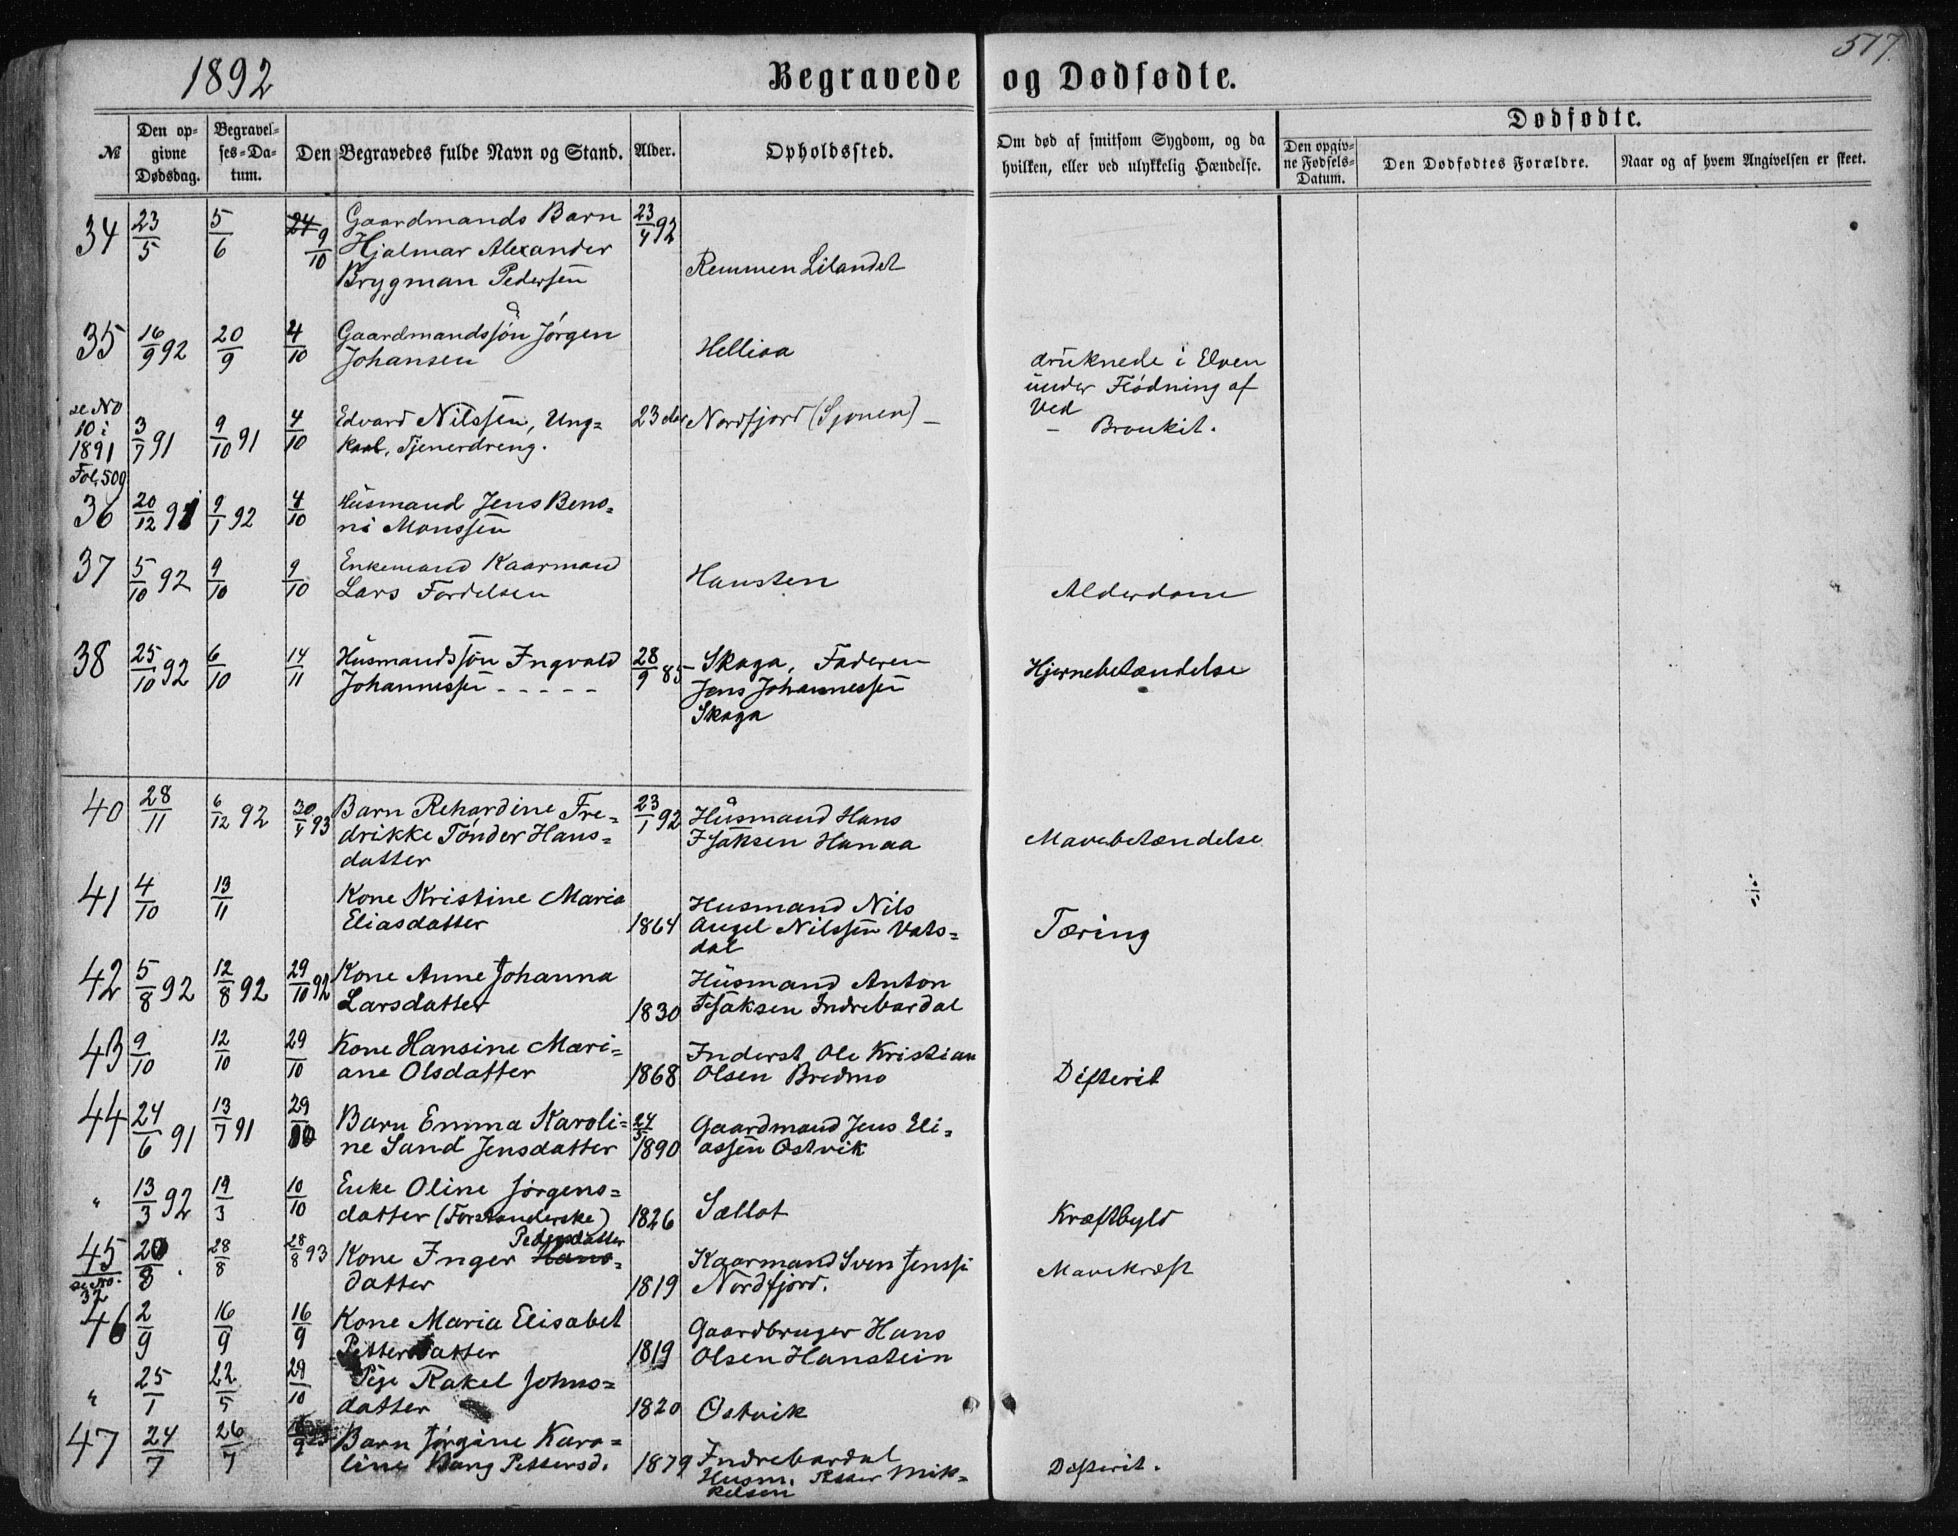 1892
Begravede og Dødfødte.
517.
№
Den op-
givne
Dødsdag.
Begravel-
ses-Da-
tum.
Den Begravedes fulde Navn og Stand.
Alder.
Opholdssted.
Om død af smitsom Sygdom, og da
hvilken, eller ved ulykkelig Hændelse.
Dødfødte.
Den opgiv-
ne Fødsels-
Datum.
Den Dødfødtes Forældre.
Naar og af hvem Angivelsen er skeet.
34 23/5 5/6 24 9/10 Gaardmands Barn 23/4 92
Hjalmar Alexander
Brygman Pedersen Remmen Lilandet
35 16/9 92 20/9 4/10 Gaardmandssøn Jørgen
Johansen Helliaa druknede i Elven
under Flødning af
Ved
se No
10 i
1891
Fol. 509
3/7 91 9/10 91 4/10 Edvard Nilssen, Ung= 23 Nordfjord (Sjonen) – – Bronkit.
karl, Tjenerdreng.
36 20/12 91 9/1 92 4/10 Husmand Jens Bens=
ni Monssen
37 5/10 92 9/10 9/10 Enkemand Kaarmand
Lars Fordelsen Hansten Alderdom
38 25/10 92 6/10 14/11 Husmandssøn Ingvald 28/9 85 Skaga, Faderen Hjernebetændelse
Johannessen - - - - - Jens Johannessen
Skaga
40 28/11 6/12 92 30/4 93 Barn Rehardine Fre= 23/1 92 Husmand Hans
drikke Tønder Hans= Isaksen Hanaa Mavebetændelse
datter
41 4/10 13/11 Kone Kristine Maria Husmand Nils
Eliasdatter 1864 Angel Nilssen Vats= Tæring
dal
42 5/8 92 12/8 92 29/10 92 Kone Anne Johanna Husmand Anton
Larsdatter 1830 Isaksen Indrebardal
43 9/10 12/10 29/10 Kone Hansine Mari= Inderst Ole Kristian
ane Olsdatter 1868 Olsen Bredmo Difterit
44 24/6 91 13/7 91 29/10 Barn Emma Karoli= 24/5 Gaardmand Jens Eli=
ne Sand Jensdatter 1890 assen Ostvik
" 13/3 92 19/3 10/10 Enke Oline Jørgens=
datter (Forstanderske) 1826 Sællot Kræftbyld
Pedersdatter
45 20/8 28/8 28/8 93 Kone Inger Hans= Kaarmand Sven Jenss Mavekræft
se No. 32 datter 1819 Nordfjord.
46 2/9 16/9 16/9 Kone Maria Elisabet Gaardbruger Hans
Pettersdatter 1819 Olsen Hanstein
" 25/1 22/5 29/10 Pige Rakel Johns=
datter 1820 Ostvik
47 24/7 26/7 Barn Jørgine Karo= Indrebardal
line Bang Pettersd. 1879 Husm. Petter Mik= Difterit.
kelsen